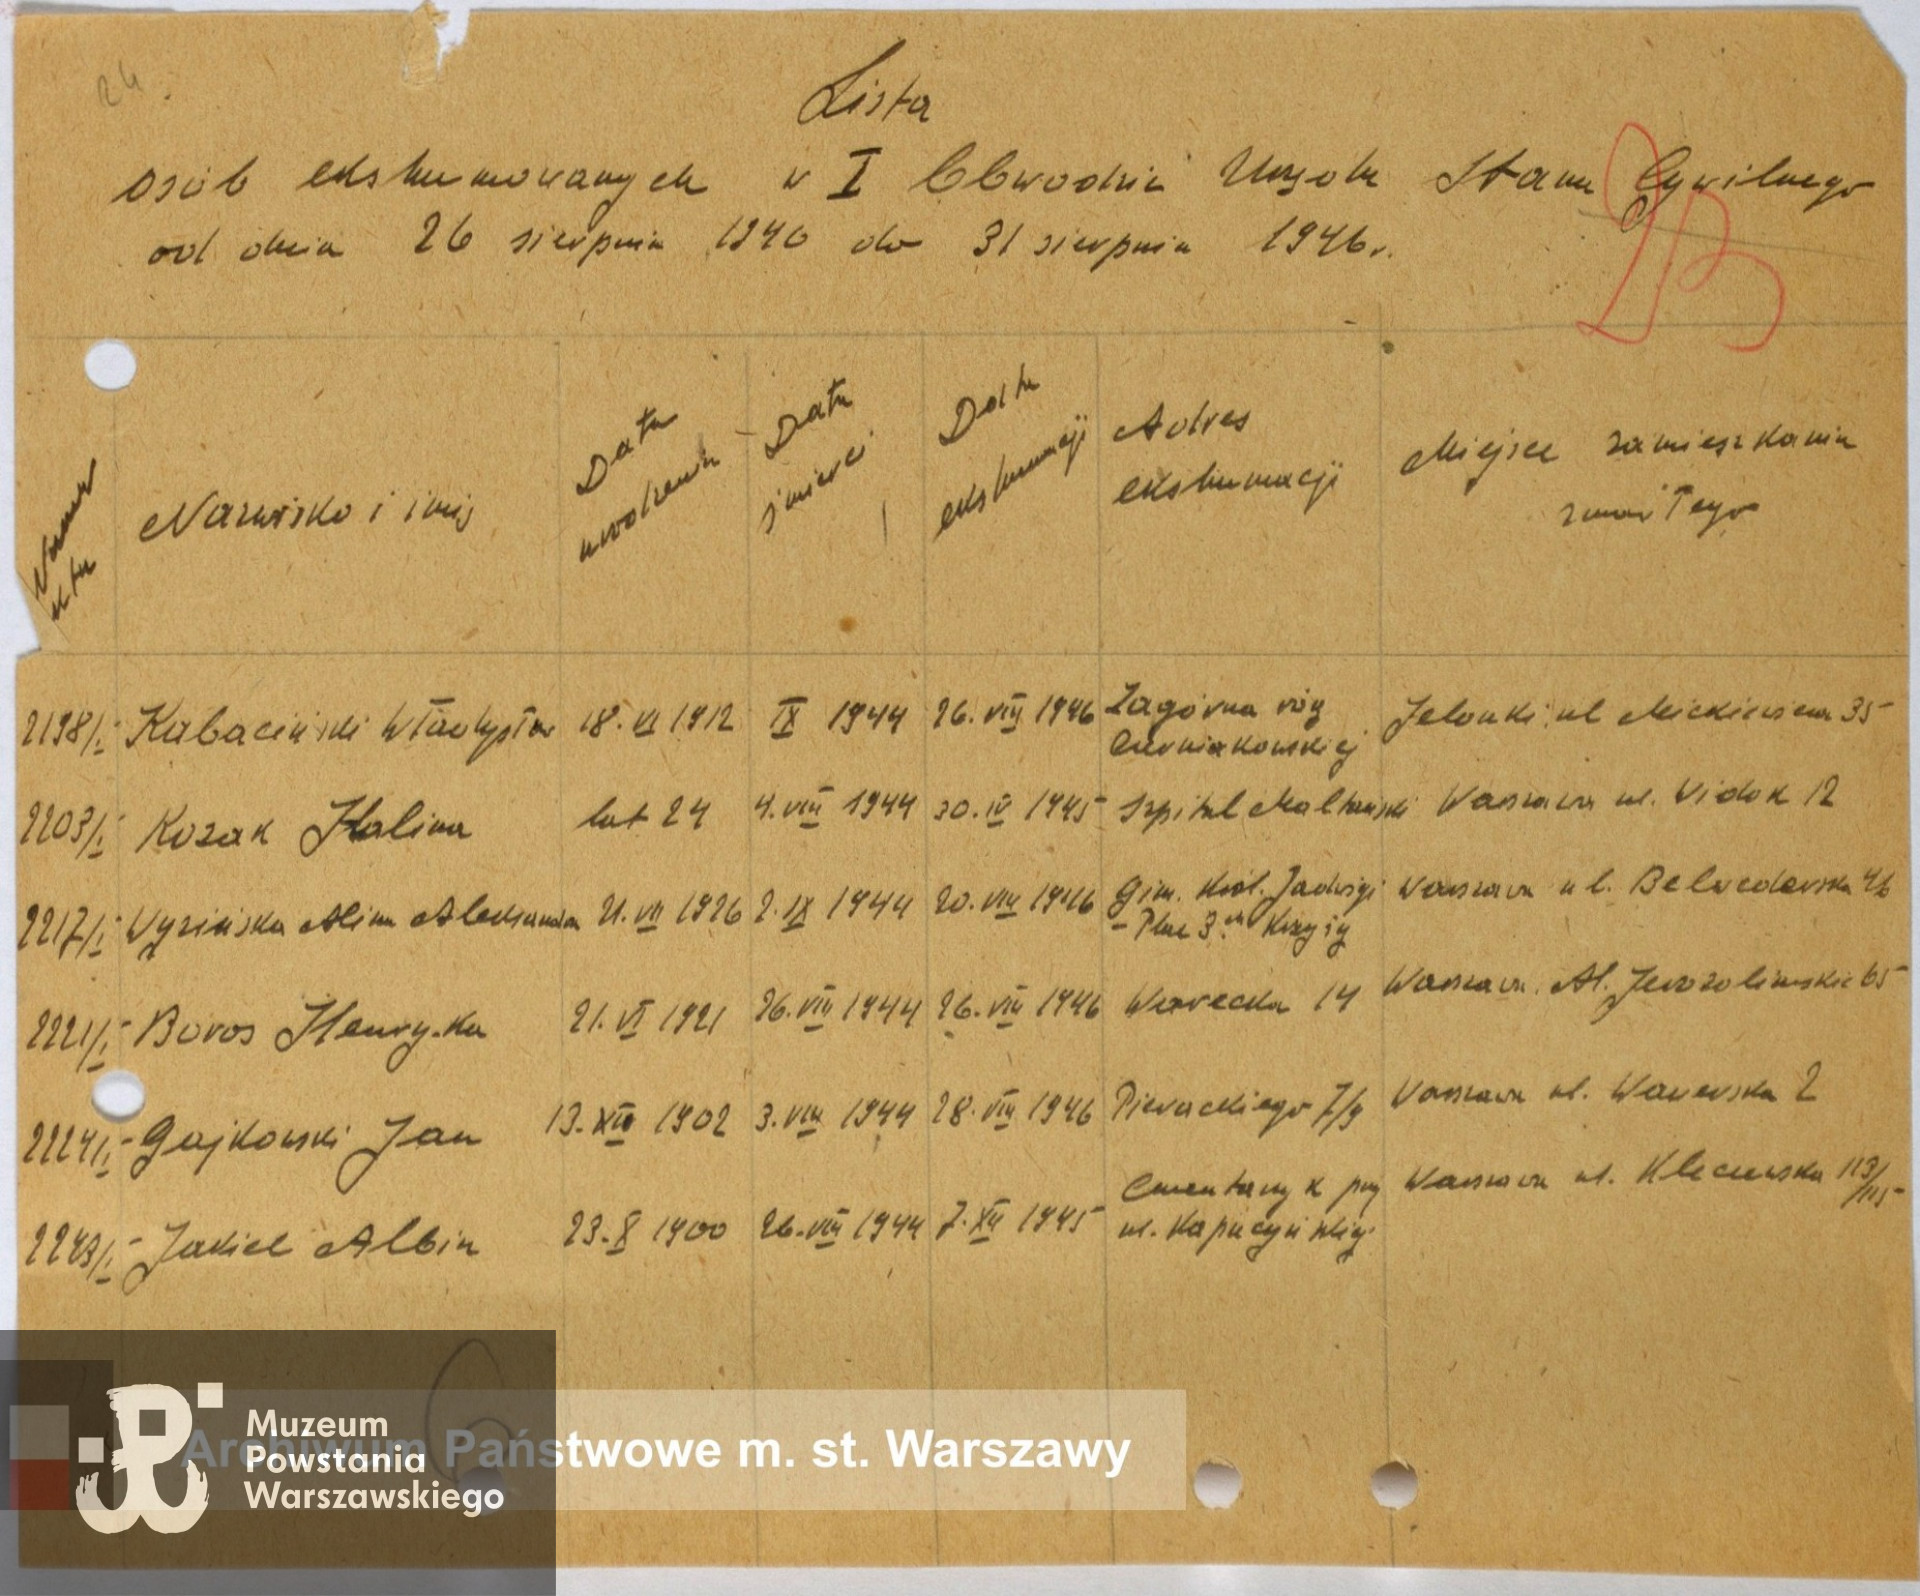 24
Lista
osób ekshumowanych w I Obwodzie Urzędu Stanu Cywilnego
od dnia 26 sierpnia 1946 do 31 sierpnia 1946r.
Numer aktu
Nazwisko i imię
Data urodzenia
Data śmierci
Data ekshumacji
Adres ekshumacji
Miejsce zamieszkania zmarłego
2198/I Kabaciński Władysław 18.VI 1912 IX 1944 26.VIII 1946 Zagórna róg Czerniakowskiej Jelonki ul Mickiewicza 35
2203/I Kozak Halina lat 24 4.VIII 1944 30.IV 1945 Szpital Maltański Warszawa ul. Widok 12
2217/I Alina Aleksandra 21.VII 1926 2.IX 1944 20.VIII 1946 Gim. Król. Jadwigi - Plac 3-ch Krzyży Warszawa ul. Belwederska
2221/I Boros Henryka 21.VI 1921 26.VIII 1944 26.VIII 1946 Warecka 14 Warszawa. Al. Jerozolimskie 65
2224/I Gajkowski Jan 13.XII 1902 3.VIII 1944 28.VIII 1946 Pierackiego 7/9 Warszawa ul. Wawerska 2
2243/I Jakiel Albin 23.X 1900 26.VIII 1944 7.XII 1945 Cmentarzyk przy ul. Kapucyńskiej Warszawa ul. Kleczewska 113/115
Archiwum Państwowe m. st. Warszawy
Muzeum
Powstania
Warszawskiego